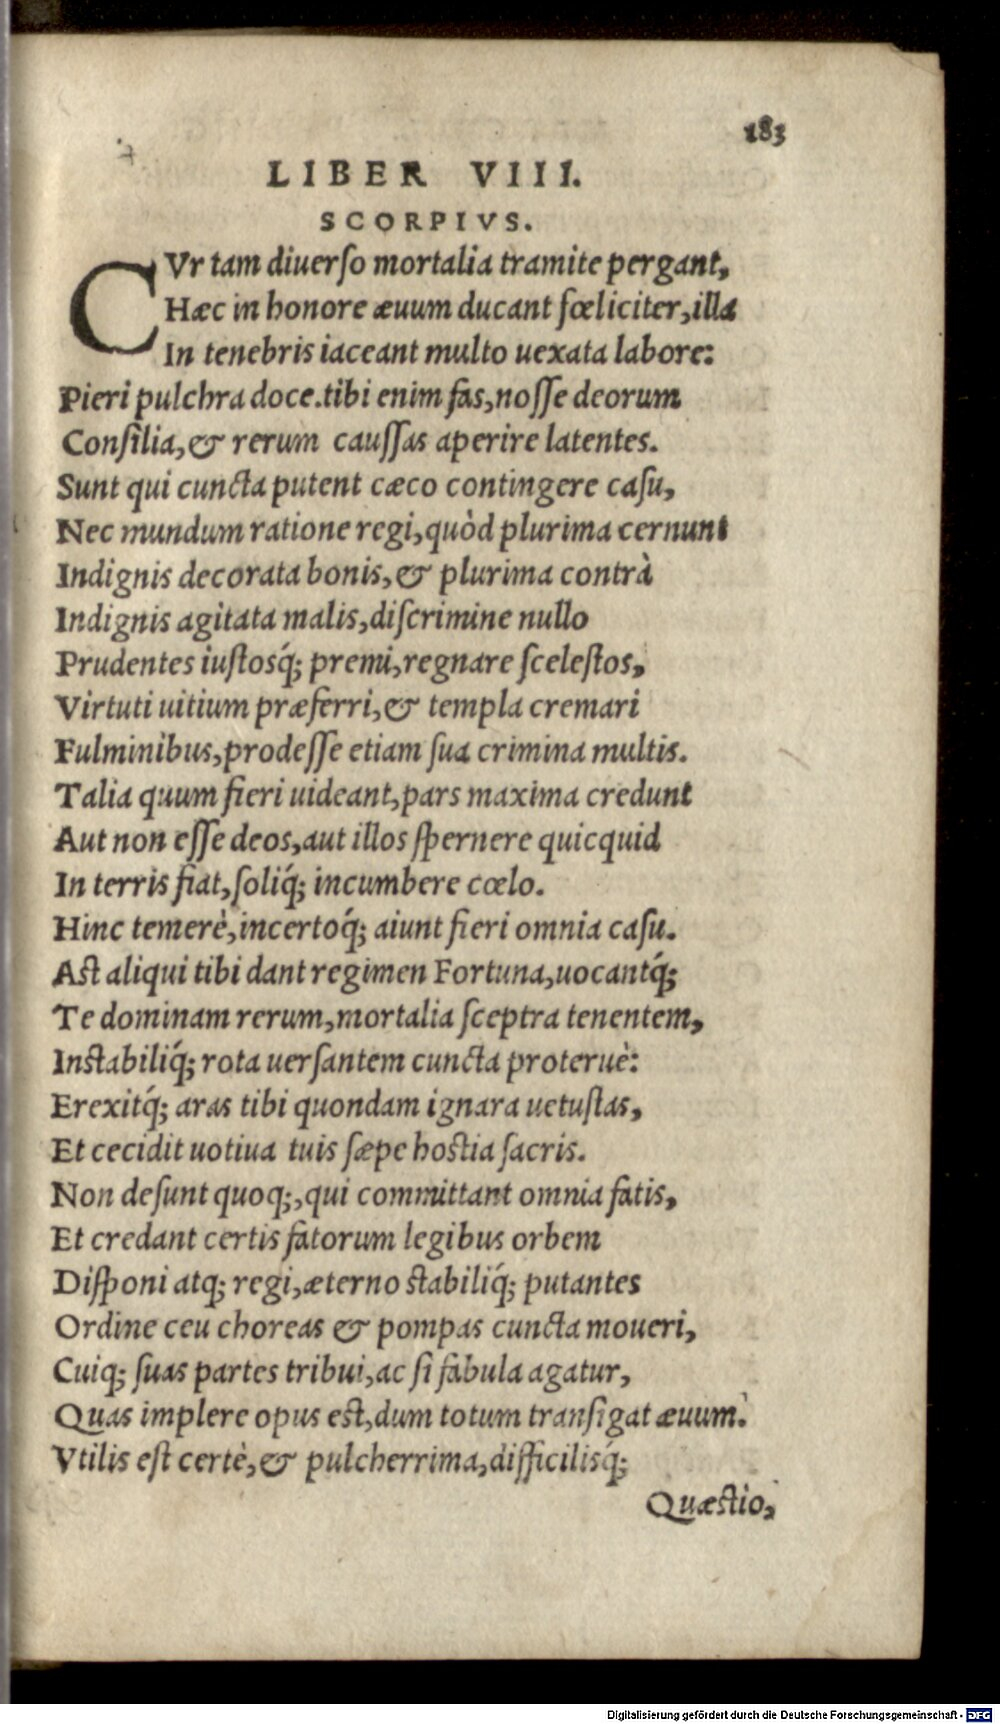 183
LIBER VIII.
SCORPIVS.
CVr tam diuerſo mortalia tramite pergant,
Hæc in honore æuum ducant fœliciter, illa
In tenebris iaceant multo uexata labore:
Pieri pulchra doce. tibi enim fas, noſſe deorum
Conſilia, & rerum cauſſas aperire latentes.
Sunt qui cuncta putent cæco contingere caſu,
Nec mundum ratione regi, quòd plurima cernunt
Indignis decorata bonis, & plurima contrà
Indignis agitata malis, diſcrimine nullo
Prudentes iuſtosq́; premi, regnare ſceleſtos,
Virtuti uitium præferri, & templa cremari
Fulminibus, prodeſſe etiam ſua crimina multis.
Talia quum fieri uideant, pars maxima credunt
Aut non eſſe deos, aut illos ſpernere quicquid
In terris fiat, ſoliq́; incumbere cœlo.
Hinc temerè, incertoq́; aiunt fieri omnia caſu.
Aſt aliqui tibi dant regimen Fortuna, uocantq́;
Te dominam rerum, mortalia ſceptra tenentem,
Inſtabiliq́; rota uerſantem cuncta proteruè:
Erexitq́; aras tibi quondam ignara uetuſtas,
Et cecidit uotiua tuis ſæpe hoſtia ſacris.
Non deſunt quoq;, qui committant omnia fatis,
Et credant certis fatorum legibus orbem
Diſponi atq; regi, æterno ſtabiliq́; putantes
Ordine ceu choreas & pompas cuncta moueri,
Cuiq; ſuas partes tribui, ac ſi fabula agatur,
Quas implere opus eſt, dum totum tranſigat æuum.
Vtilis eſt certè, & pulcherrima, difficilisq́;
Quæſtio,
Digitalisierung gefördert durch die Deutsche Forschungsgemeinschaft - DFG